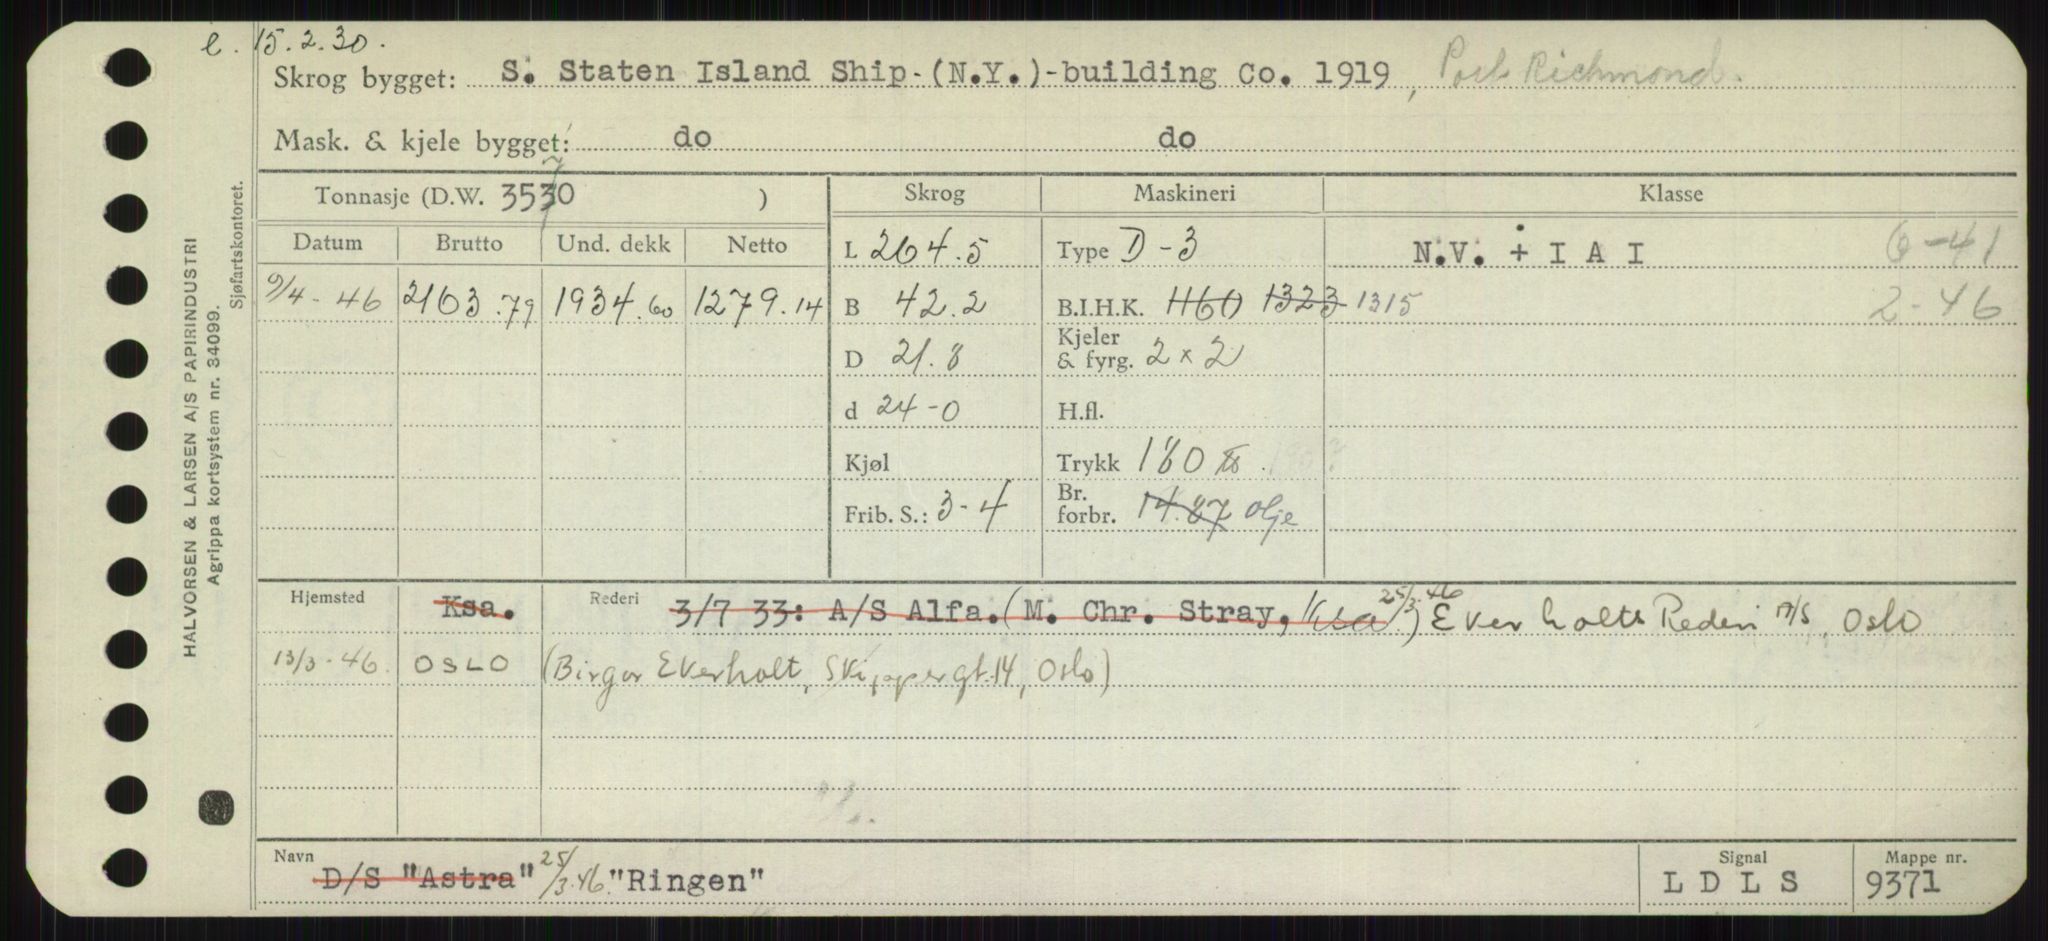 e. 15.2.30.
Skrog bygget: S. Staten Island Ship-(N.Y.)-building Co. 1919, Port Richmond.
Mask. & kjele bygget: do do
Tonnasje (D.W. 3530 7 )
Skrog Maskineri Klasse
Datum Brutto Und. dekk Netto
L 264.5 Type D-3 N.V. + I A I 6-41
9/4-46 2163.79 1934.60 1279.14 B 42.2 B.I.H.K. 1160 1323 1315 2-46
D 21.8 Kjeler & fyrg. 2 x 2
d 24-0 H.fl.
Kjøl Trykk 180 lbs.
Frib. S.: 3-4 Br. forbr. 14.87 olje
Hjemsted Ksa. Rederi 3/7 33: A/S Alfa. (M. Chr. Stray, Ksa) 25/3.46 Ekerholts Rederi A/S, Oslo
13/3-46. OSLO (Birger Ekerholt, Skippergt. 14, Oslo)
Navn D/S "Astra" 25/3.46. "Ringen"
Signal LDLS
Mappe nr. 9371
HALVORSEN & LARSEN A/S PAPIRINDUSTRI
Agrippa kortsystem nr. 34099.
Sjøfartskontoret.